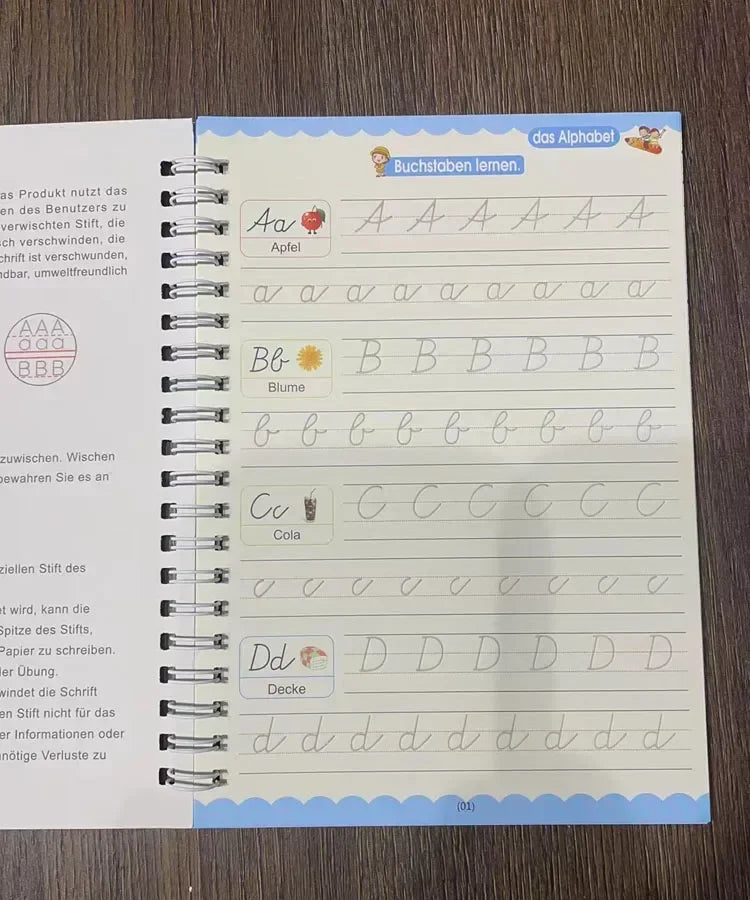 as Produkt nutzt das
en des Benutzers zu
verwischten Stift, die
sch verschwinden, die
chrift ist verschwunden,
ndbar, umweltfreundlich
AAA
aaa
BBB
zuwischen. Wischen
bewahren Sie es an
ziellen Stift des
et wird, kann die
Spitze des Stifts,
Papier zu schreiben.
der Übung.
windet die Schrift
en Stift nicht für das
er Informationen oder
nötige Verluste zu
das Alphabet
Buchstaben lernen.
Aa A A A A A A
Apfel
a a a a a a a a a
Bb B B B B B B
Blume
b b b b b b b b b
Cc C C C C C C
Cola
c c c c c c c c c
Dd D D D D D D
Decke
d d d d d d d d d
(01)